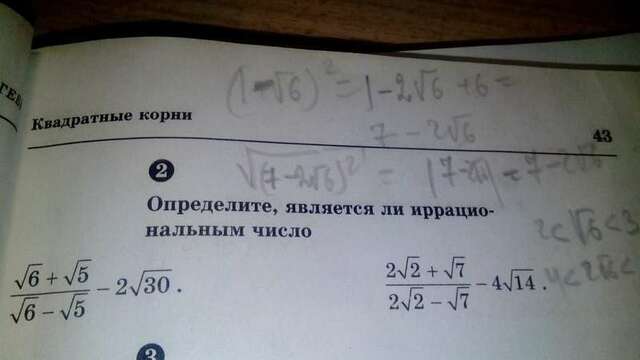 (1-√6)² = 1-2√6+6 =
7-2√6
Квадратные корни
43
√(7-2√6)² = |7-2√6| = 7-2√6
2
Определите, является ли иррацио-
нальным число
2<√6<3
(√6 + √5)/(√6 − √5) − 2√30.
(2√2 + √7)/(2√2 − √7) − 4√14.
4<2√6<
3